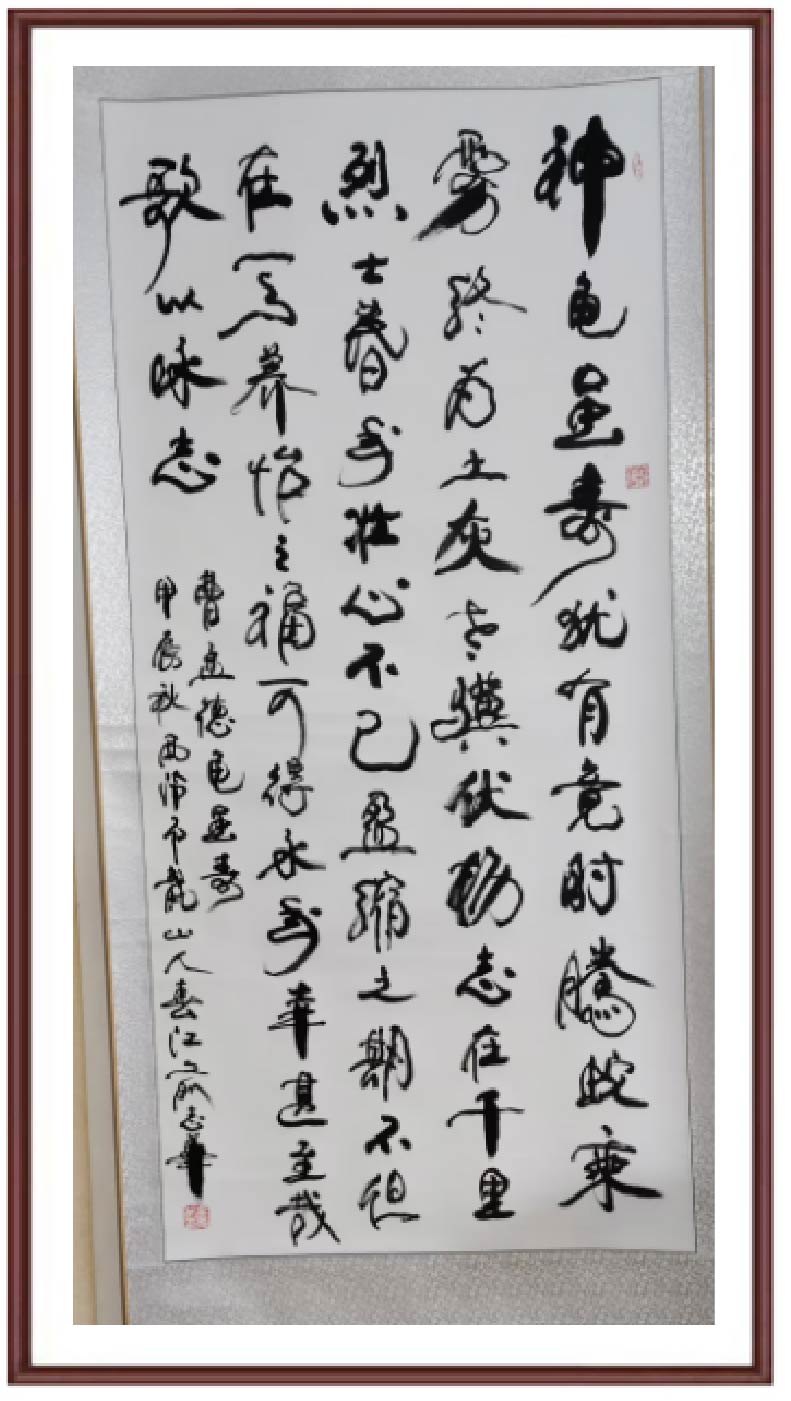 神龟虽寿犹有竟时腾蛇乘
雾终为土灰老骥伏枥志在千里
烈士暮年壮心不已盈缩之期不但
在天养怡之福可得永年幸甚至哉
歌以咏志
曹孟德龟虽寿
甲辰秋龙山人春江志华